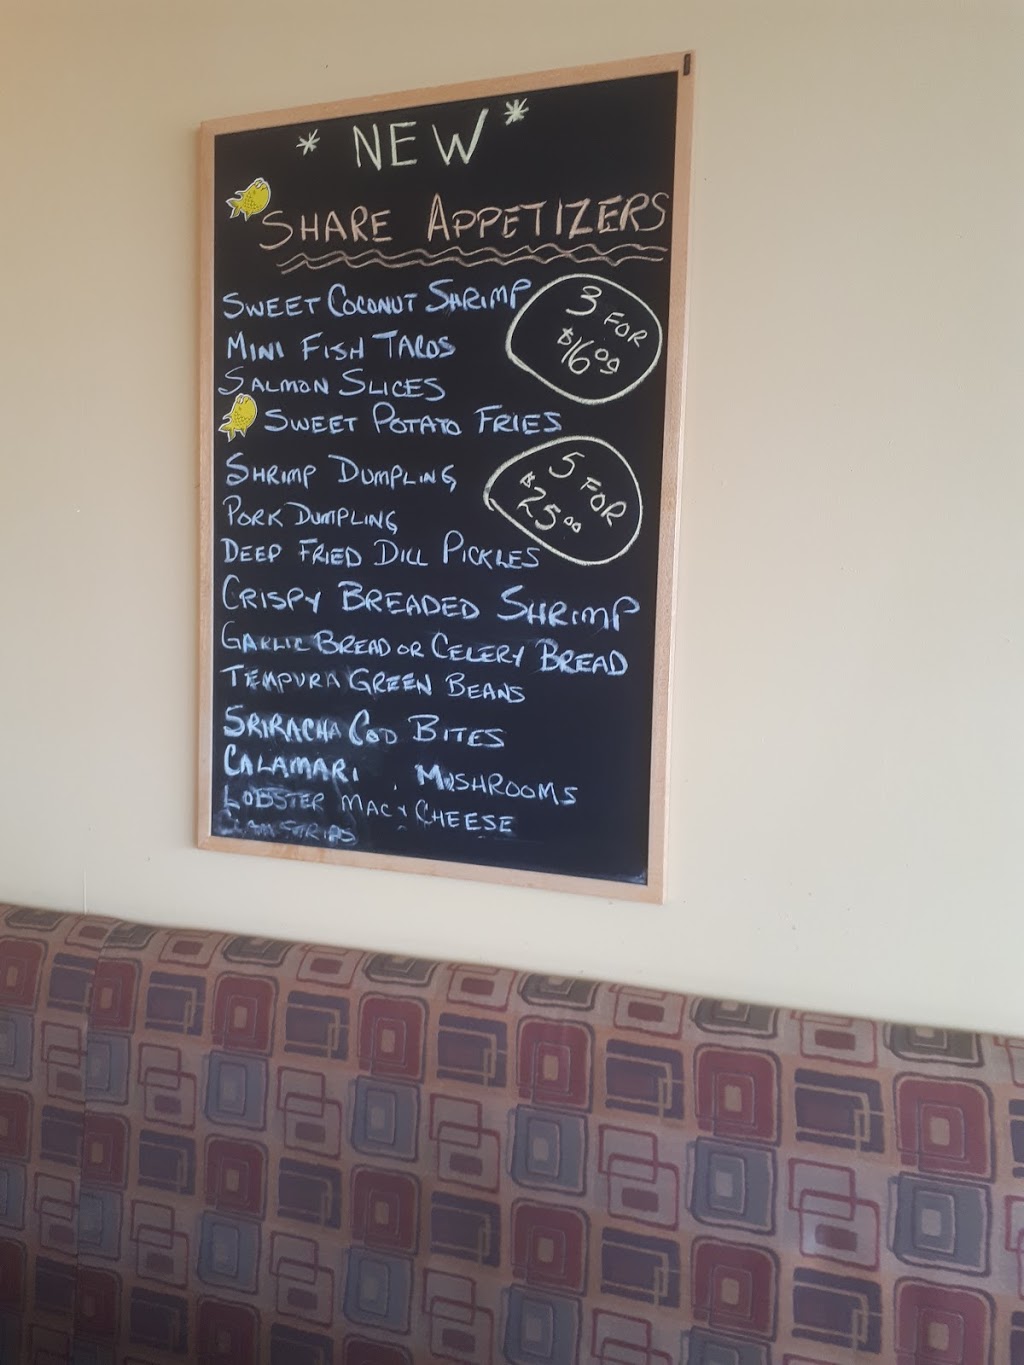 * NEW *
SHARE APPETIZERS
SWEET COCONUT SHRIMP
3 FOR
$16.00
MINI FISH TACOS
SALMON SLICES
SWEET POTATO FRIES
SHRIMP DUMPLING
5 FOR
$25.00
PORK DUMPLING
DEEP FRIED DILL PICKLES
CRISPY BREADED SHRIMP
GARLIC BREAD OR CELERY BREAD
TEMPURA GREEN BEANS
SRIRACHA COD BITES
CALAMARI . MUSHROOMS
LOBSTER MAC & CHEESE
CLAM STRIPS